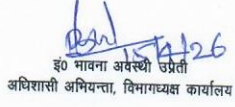 15/4/26
इं0 भावना अवस्थी उप्रेती
अधिशासी अभियन्ता, विभागध्यक्ष कार्यालय